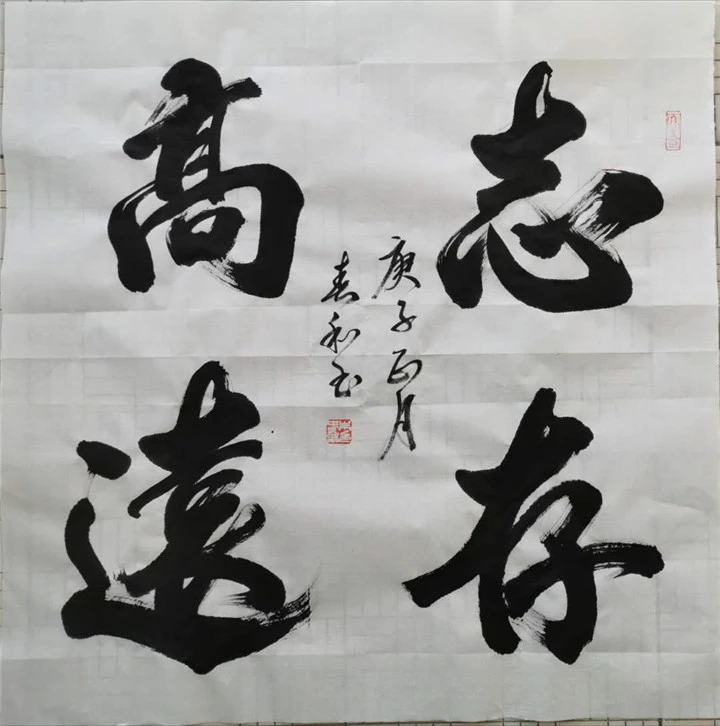 志存
高遠
庚子正月
春和书